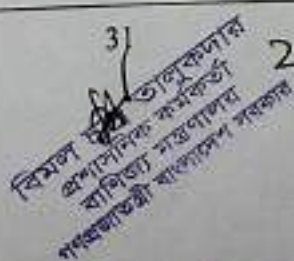 31
2
বিমল তালুকদার
প্রশাসনিক কর্মকর্তা
বাণিজ্য মন্ত্রণালয়
গণপ্রজাতন্ত্রী বাংলাদেশ সরকার